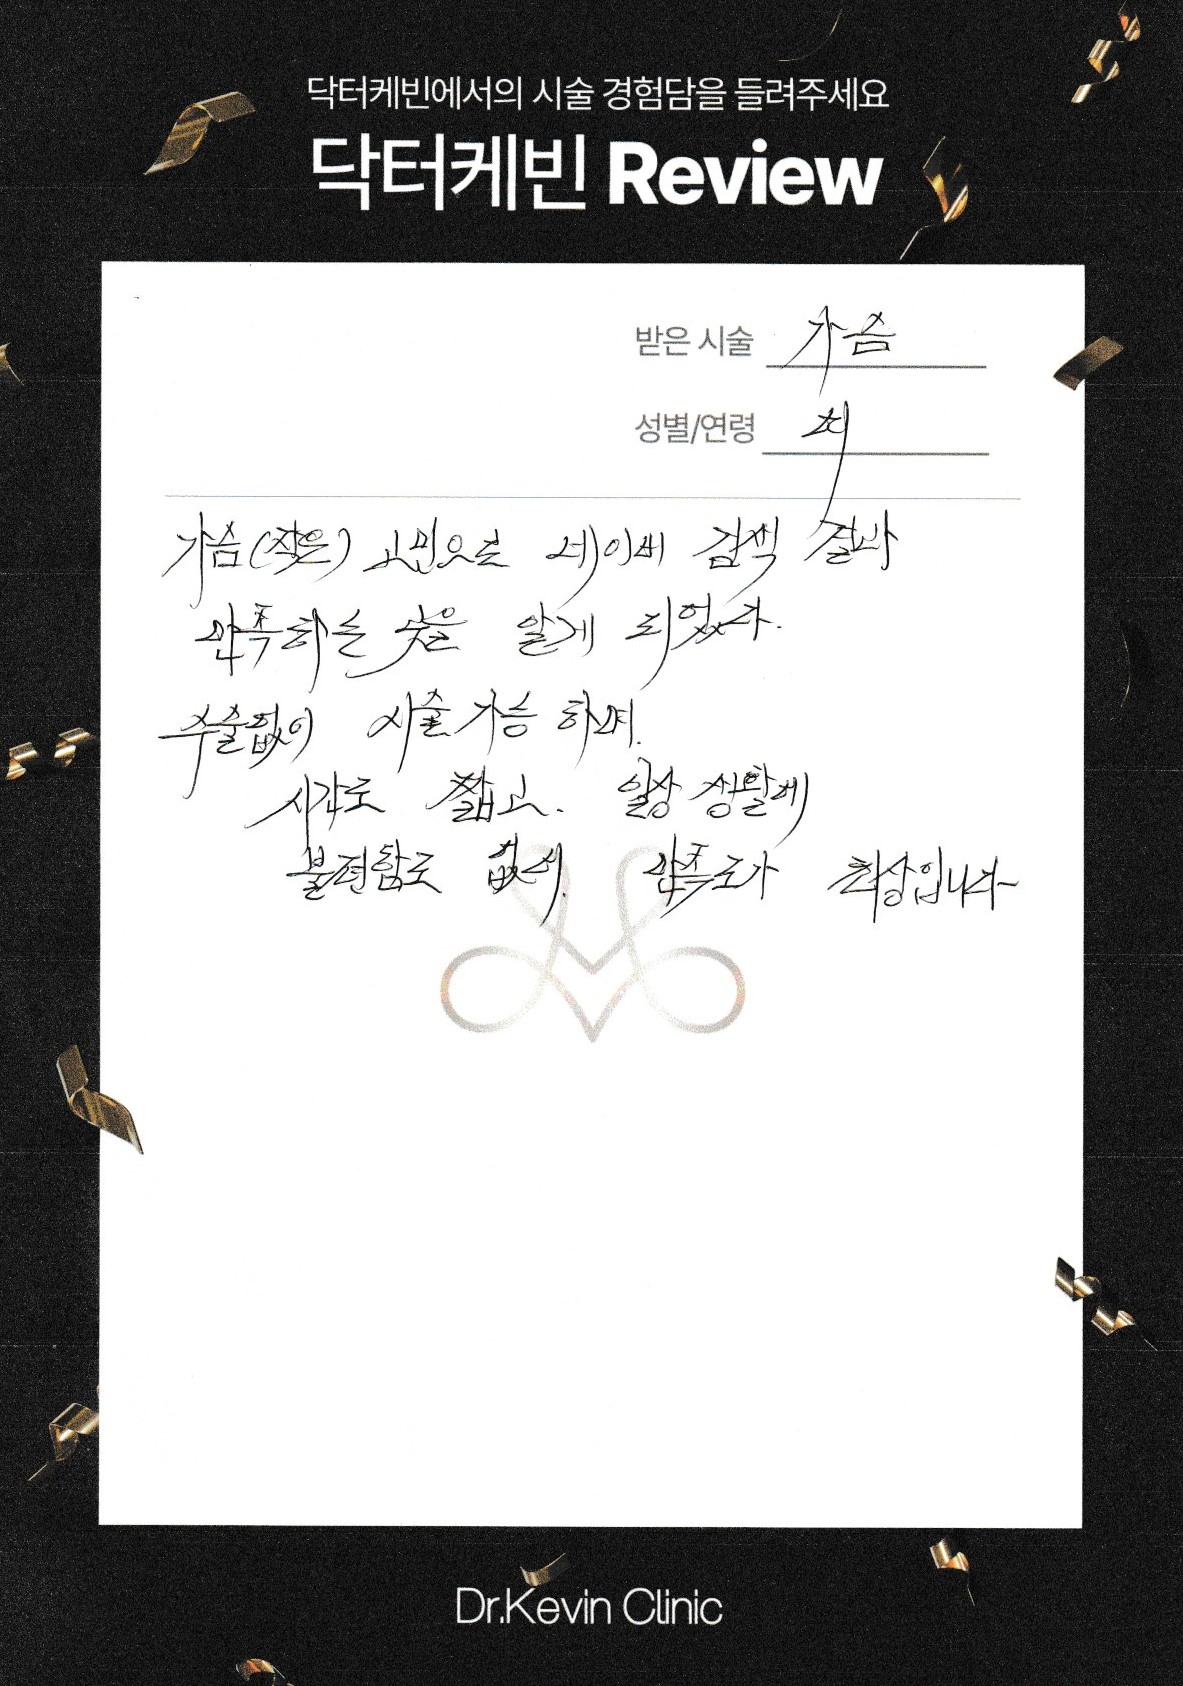 닥터케빈에서의 시술 경험담을 들려주세요
닥터케빈 Review
받은 시술 가슴
성별/연령 여
가슴(작은) 고민으로 네이버 검색 결과
만족하는 곳을 알게 되었다.
수술없이 시술가능 하며.
시간도 짧고. 일상 생활에
불편함도 없어. 만족도가 최상입니다
Dr.Kevin Clinic